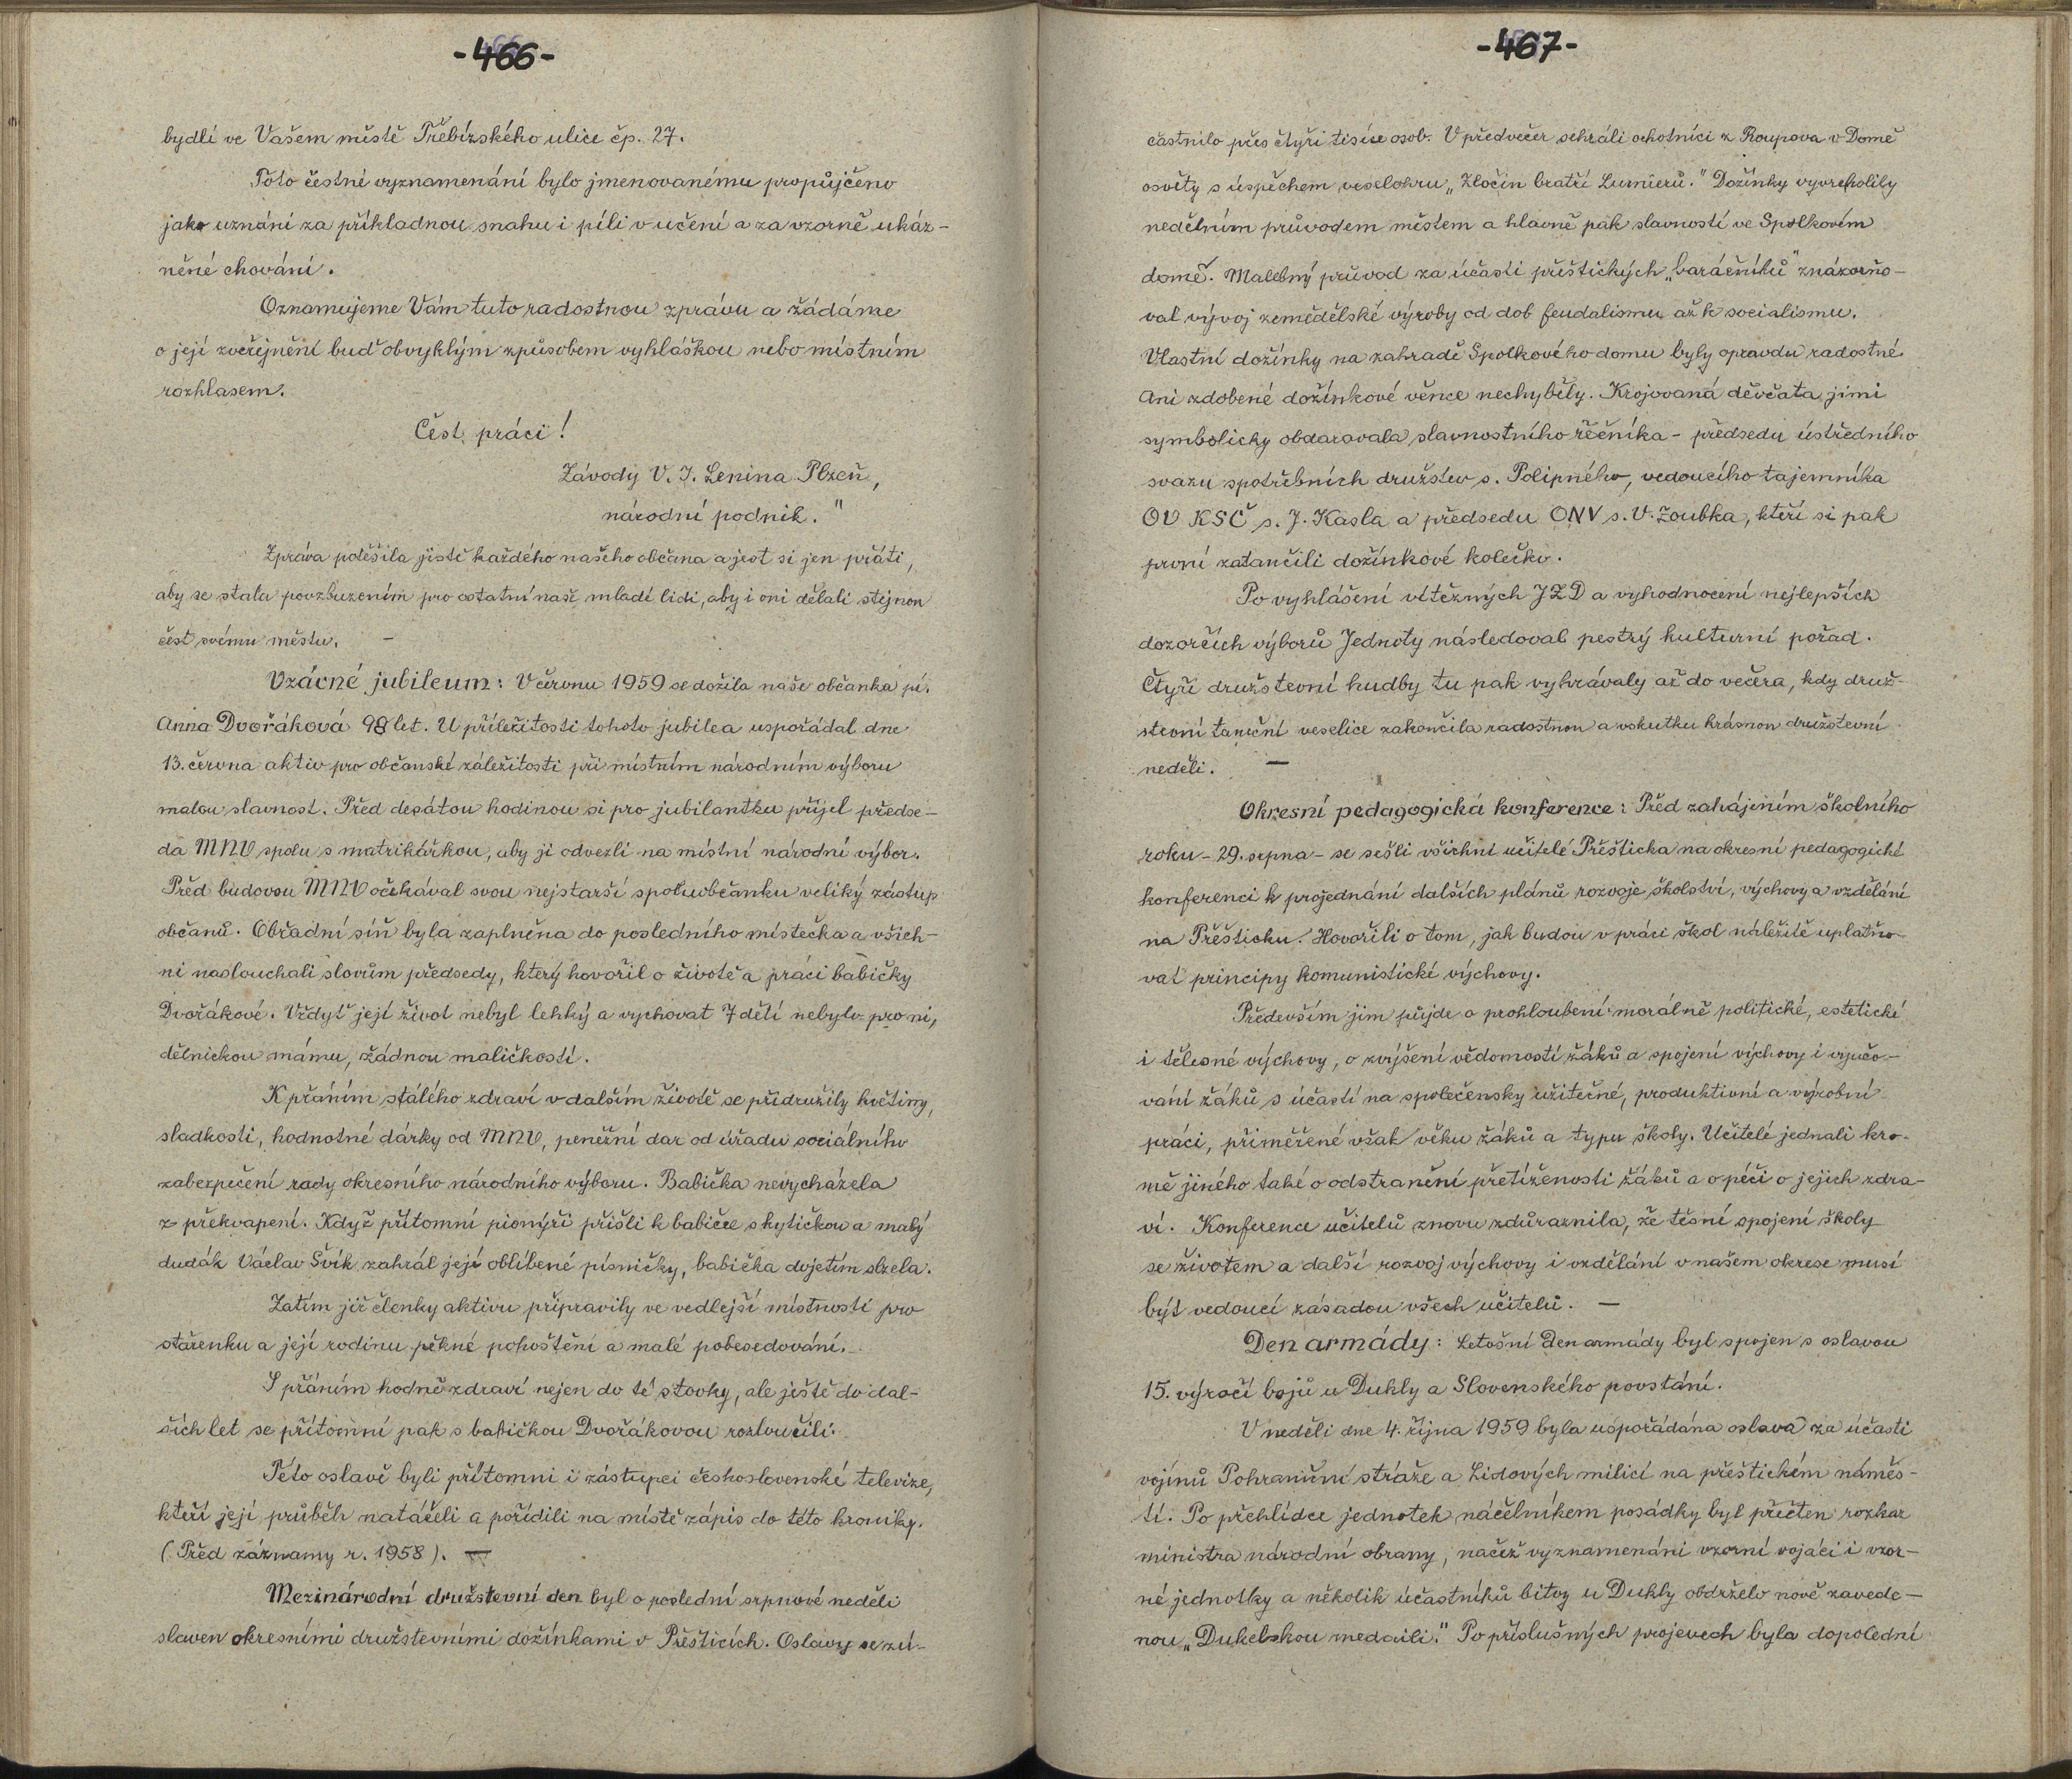 -466-
bydlí ve Vašem městě Třebízského ulice čp. 27.
Toto čestné vyznamenání bylo jmenovanému propůjčeno
jako uznání za příkladnou snahu i píli v učení a za vzorně ukáz-
něné chování.
Oznamujeme Vám tuto radostnou zprávu a žádáme
o její zveřejnění buď obvyklým způsobem vyhláškou nebo místním
rozhlasem.
Čest práci!
Závody V. I. Lenina Plzeň,
národní podnik."
Zpráva potěšila jistě každého našeho občana a jest si jen přáti,
aby se stala povzbuzením pro ostatní naše mladé lidi, aby i oni dělali stejnou
čest svému městu. -
Vzácné jubileum: V červnu 1959 se dožila naše občanka pí.
Anna Dvořáková 98 let. U příležitosti tohoto jubilea uspořádal dne
13. června aktiv pro občanské záležitosti při místním národním výboru
malou slavnost. Před desátou hodinou si pro jubilantku přijel předse-
da MNV spolu s matrikářkou, aby ji odvezli na místní národní výbor.
Před budovou MNV očekával svou nejstarší spoluobčanku veliký zástup
občanů. Obřadní síň byla zaplněna do posledního místečka a všich-
ni naslouchali slovům předsedy, který hovořil o životě a práci babičky
Dvořákové. Vždyť její život nebyl lehký a vychovat 7 dětí nebylo pro ni,
dělnickou mámu, žádnou maličkostí.
K přáním stálého zdraví v dalším životě se přidružily květiny,
sladkosti, hodnotné dárky od MNV, peněžní dar od úřadu sociálního
zabezpečení rady okresního národního výboru. Babička nevycházela
z překvapení. Když přítomní pionýři přišli k babičce s kytičkou a malý
dudák Václav Švík zahrál její oblíbené písničky, babička dojetím slzela.
Zatím již členky aktivu připravily ve vedlejší místnosti pro
stařenku a její rodinu pěkné pohoštění a malé pobesedování.
S přáním hodně zdraví nejen do té stovky, ale ještě do dal-
ších let se přítomní pak s babičkou Dvořákovou rozloučili.
Této oslavě byli přítomni i zástupci československé televize,
kteří její průběh natáčeli a pořídili na místě zápis do této kroniky.
(Před záznamy r. 1958). -
Mezinárodní družstevní den byl o poslední srpnové neděli
slaven okresními družstevními dožínkami v Přešticích. Oslavy se zú-
-467-
častnilo přes čtyři tisíce osob. V předvečer sehráli ochotníci z Roupova v Domě
osvěty s úspěchem veselohru „Zločin bratří Lumierů." Dožínky vyvrcholily
nedělním průvodem městem a hlavně pak slavností ve Spolkovém
domě. Malebný průvod za účasti přeštických „baráčníků" znázorňo-
val vývoj zemědělské výroby od dob feudalismu až k socialismu.
Vlastní dožínky na zahradě Spolkového domu byly opravdu radostné.
Ani zdobené dožínkové věnce nechyběly. Krojovaná děvčata jimi
symbolicky obdarovala slavnostního řečníka - předsedu ústředního
svazu spotřebních družstev s. Polipného, vedoucího tajemníka
OV KSČ s. J. Kasla a předsedu ONV s. V. Zoubka, kteří si pak
první zatančili dožínkové kolečko.
Po vyhlášení vítězných JZD a vyhodnocení nejlepších
dozorčích výborů Jednoty následoval pestrý kulturní pořad.
Čtyři družstevní hudby tu pak vyhrávaly až do večera, kdy druž-
stevní taneční veselice zakončila radostnou a vskutku krásnou družstevní
neděli. -
Okresní pedagogická konference: Před zahájením školního
roku - 29. srpna - se sešli všichni učitelé Přešticka na okresní pedagogické
konferenci k projednání dalších plánů rozvoje školství, výchovy a vzdělání
na Přešticku. Hovořili o tom, jak budou v práci škol náležitě uplatňo-
vat principy komunistické výchovy.
Především jim půjde o prohloubení morálně politické, estetické
i tělesné výchovy, o zvýšení vědomostí žáků a spojení výchovy i vyučo-
vání žáků s účastí na společensky užitečné, produktivní a výrobní
práci, přiměřené však věku žáků a typu školy. Učitelé jednali kro-
mě jiného také o odstranění přetíženosti žáků a o péči o jejich zdra-
ví. Konference učitelů znovu zdůraznila, že těsné spojení školy
se životem a další rozvoj výchovy i vzdělání v našem okrese musí
být vedoucí zásadou všech učitelů. -
Den armády: Letošní Den armády byl spojen s oslavou
15. výročí bojů u Dukly a Slovenského povstání.
V neděli dne 4. října 1959 byla uspořádána oslava za účasti
vojínů Pohraniční stráže a Lidových milicí na přeštickém náměs-
tí. Po přehlídce jednotek náčelníkem posádky byl přečten rozkaz
ministra národní obrany, načež vyznamenáni vzorní vojáci i vzor-
né jednotky a několik účastníků bitvy u Dukly obdrželo nově zavede-
nou „Dukelskou medaili." Po příslušných projevech byla dopolední